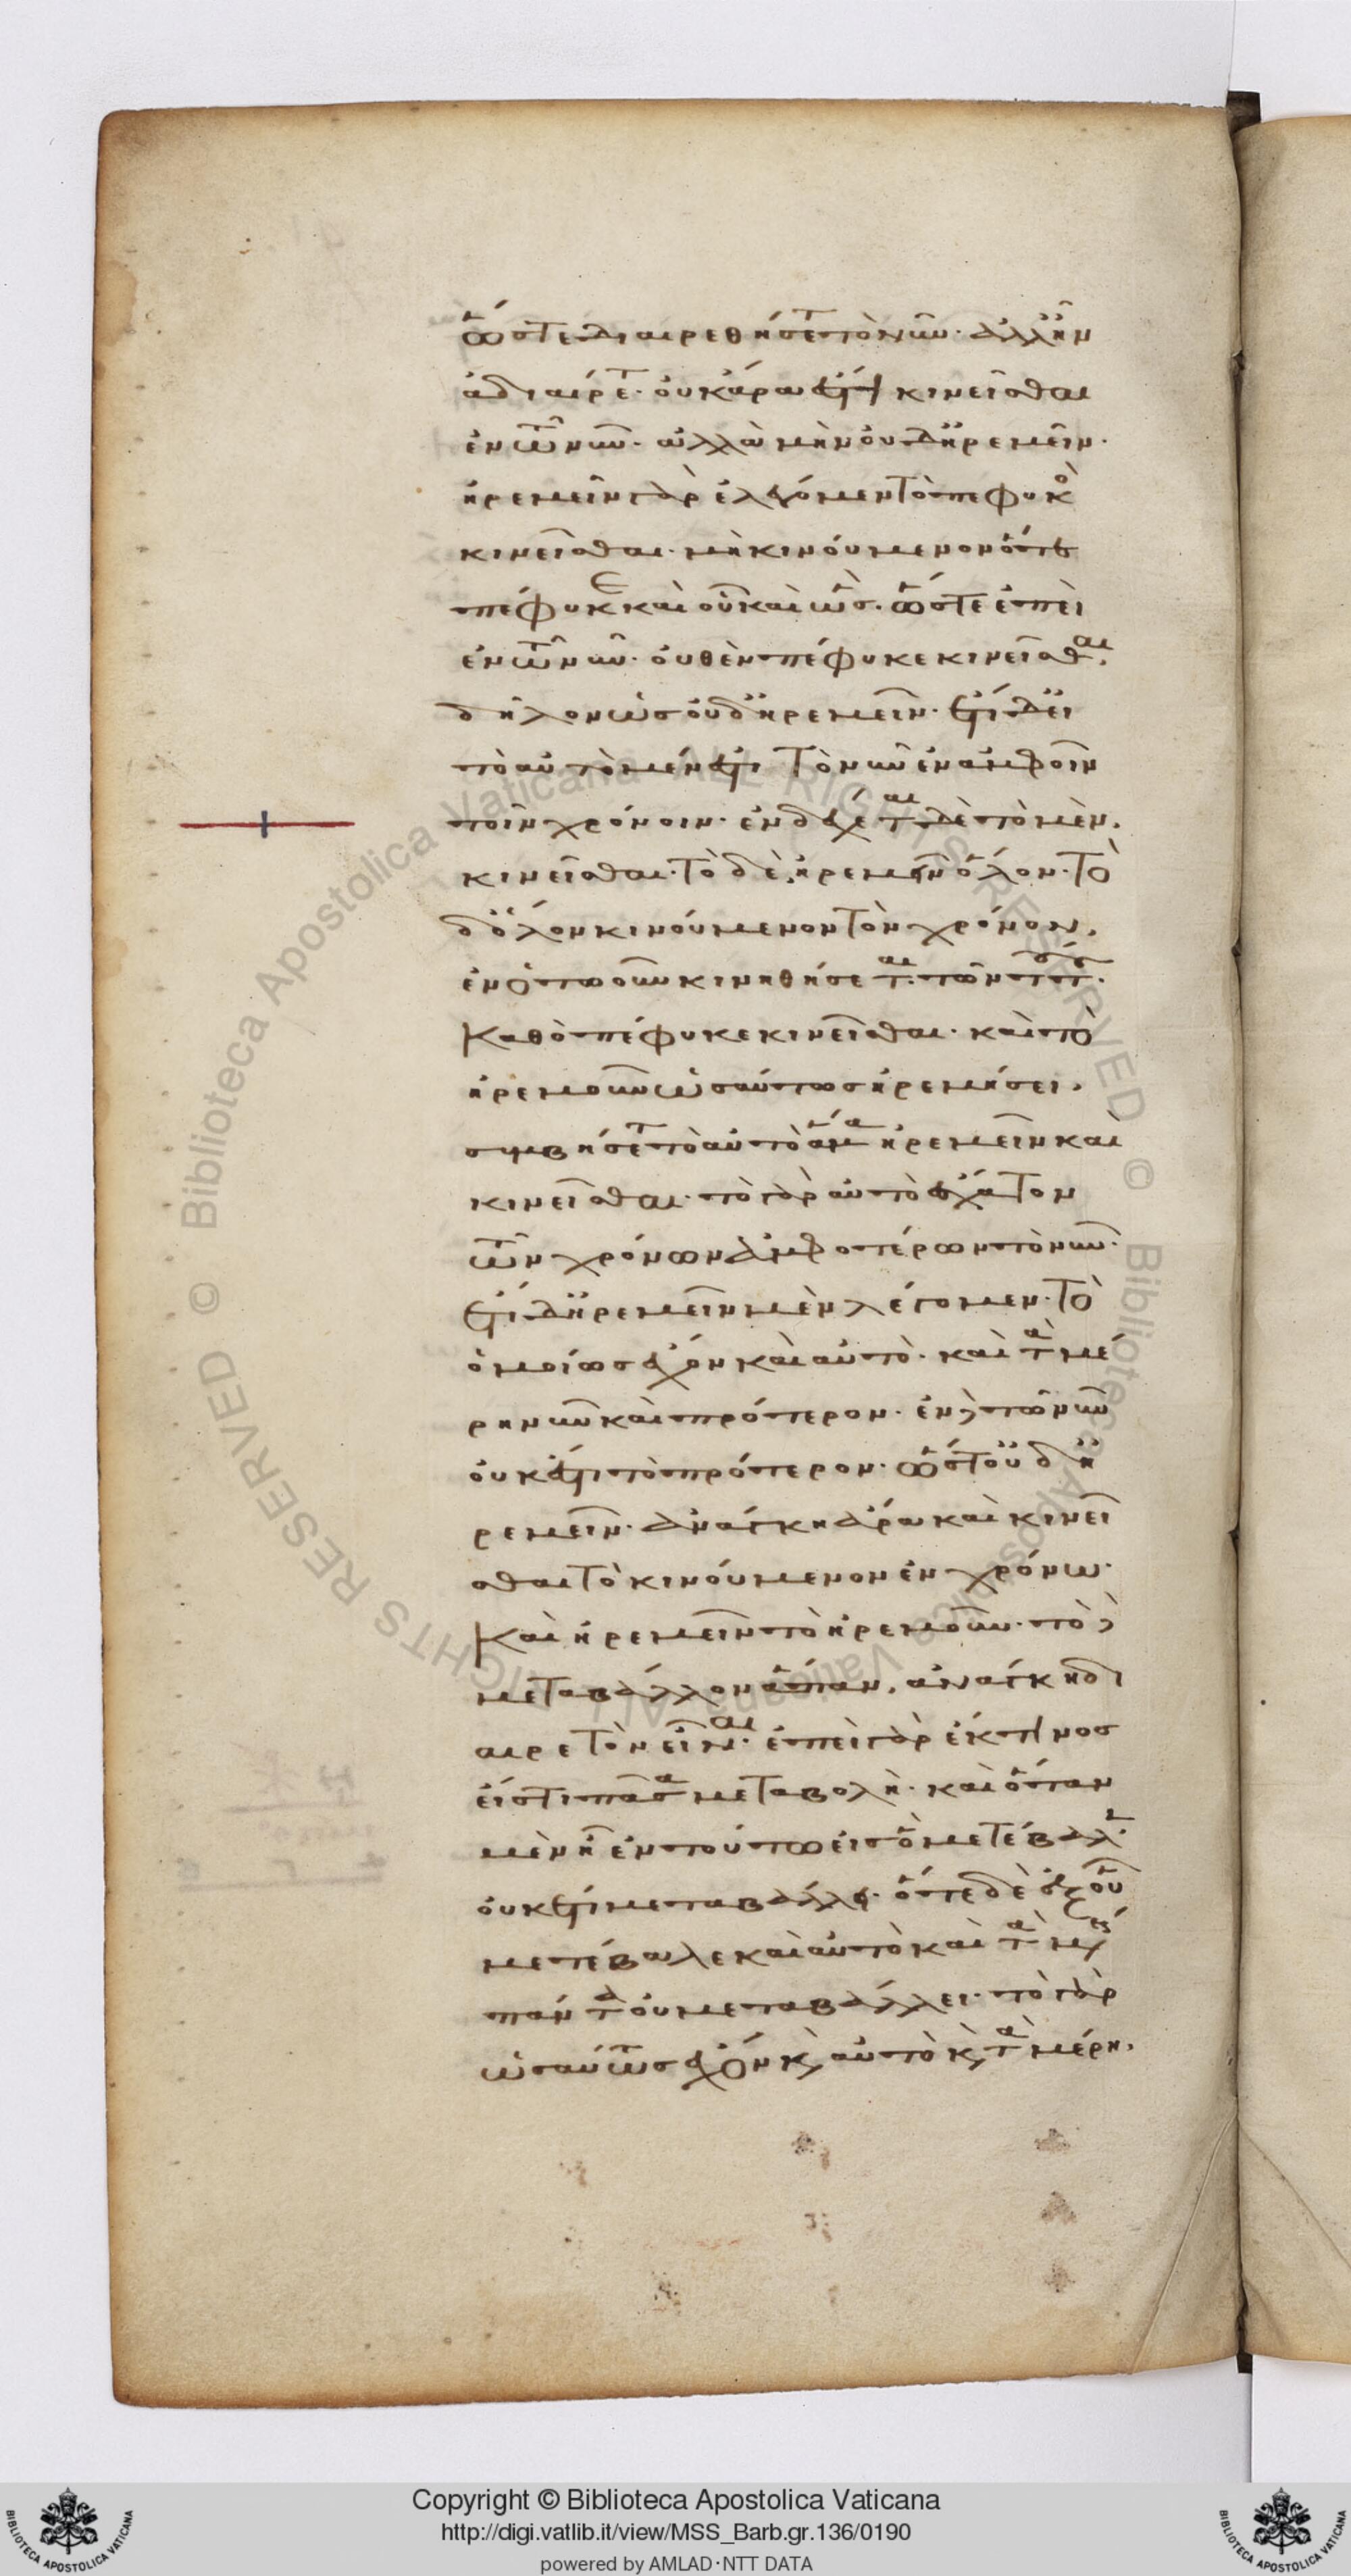 ὥστε διαιρεθήσεται τὸ νῦν. ἀλλ' ἦν
ἀδιαίρετον. οὐκ ἄρα ἔστι κινεῖσθαι
ἐν τῷ νῦν. ἀλλὰ μὴν οὐδ' ἠρεμεῖν.
ἠρεμεῖν γὰρ ἐλέγομεν τὸ πεφυκὸς
κινεῖσθαι. μὴ κινούμενον ὅτε
πέφυκε καὶ οὗ καὶ ὥς. ὥστε ἐπεὶ
ἐν τῷ νῦν. οὐθὲν πέφυκε κινεῖσθαι.
δῆλον ὡς οὐδ' ἠρεμεῖν. ἔτι δ' εἰ
τὸ αὐτὸ μέν ἐστι τὸ νῦν ἐν ἀμφοῖν
τοῖν χρόνοιν. ἐνδέχεται δὲ τὸ μὲν.
κινεῖσθαι. τὸ δὲ ἠρεμεῖν ὅλον. τὸ
δ' ὅλον κινούμενον τὸν χρόνον.
ἐν ὁτῳοῦν κινηθήσεται τῶν τούτου.
καθὸ πέφυκε κινεῖσθαι. καὶ τὸ
ἠρεμοῦν ὡσαύτως ἠρεμήσει.
συμβήσεται τὸ αὐτὸ ἅμα ἠρεμεῖν καὶ
κινεῖσθαι. τὸ γὰρ αὐτὸ ἔσχατον
τῶν χρόνων ἀμφοτέρων τὸ νῦν.
ἔτι δ' ἠρεμεῖν μὲν λέγομεν. τὸ
ὁμοίως ἔχον καὶ αὐτὸ. καὶ τὰ μέ
ρη νῦν καὶ πρότερον. ἐν δὲ τῷ νῦν
οὐκ ἔστι τὸ πρότερον. ὥστ' οὐδ' ἠ
ρεμεῖν. ἀνάγκη ἄρα καὶ κινεῖ
σθαι τὸ κινούμενον ἐν χρόνῳ.
καὶ ἠρεμεῖν τὸ ἠρεμοῦν. τὸ δὲ
μεταβάλλον ἅπαν. ἀνάγκη δι
αιρετὸν εἶναι. ἐπεὶ γὰρ ἔκ τινος
εἴς τι πᾶσα μεταβολή. καὶ ὅταν
μὲν ᾖ ἐν τούτῳ εἰς ὃ μετέβαλεν.
οὐκέτι μεταβάλλει. ὅτε δὲ ἐξ οὗ
μετέβαλε καὶ αὐτὸ καὶ τὰ μέρη
πάντα οὐ μεταβάλλει. τὸ γὰρ
ὡσαύτως ἔχον καὶ αὐτὸ καὶ τὰ μέρη.
Copyright © Biblioteca Apostolica Vaticana
http://digi.vatlib.it/view/MSS_Barb.gr.136/0190
powered by AMLAD·NTT DATA